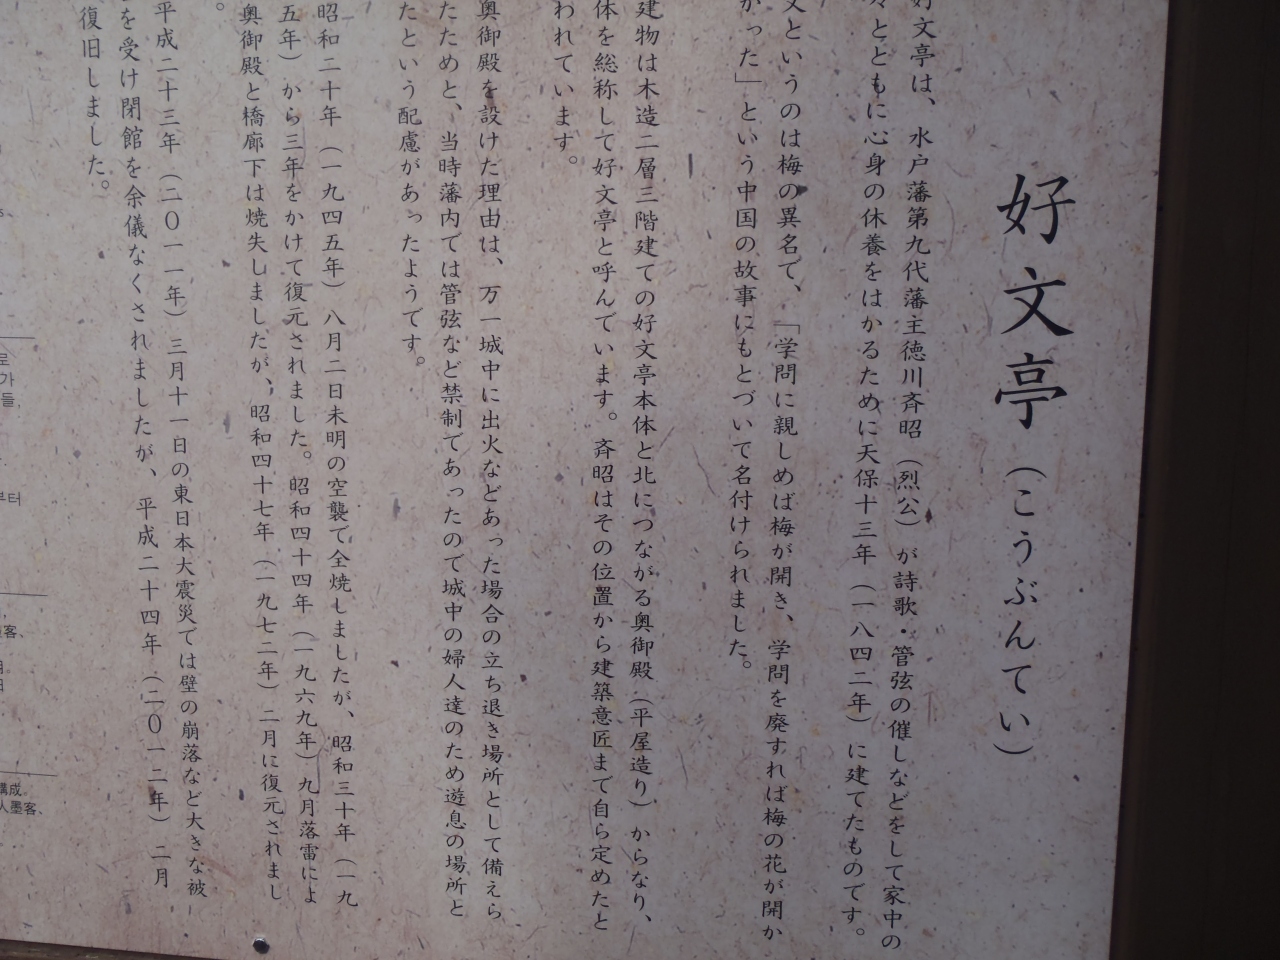 好文亭（こうぶんてい）
好文亭は、水戸藩第九代藩主徳川斉昭（烈公）が詩歌・管弦の催しなどをして家中の
々とともに心身の休養をはかるために天保十三年（一八四二年）に建てたものです。
文というのは梅の異名で、「学問に親しめば梅が開き、学問を廃すれば梅の花が開か
かった」という中国の故事にもとづいて名付けられました。
建物は木造二層三階建ての好文亭本体と北につながる奥御殿（平屋造り）からなり、
体を総称して好文亭と呼んでいます。斉昭はその位置から建築意匠まで自ら定めたと
われています。
奥御殿を設けた理由は、万一城中に出火などあった場合の立ち退き場所として備えら
たためと、当時藩内では管弦など禁制であったので城中の婦人達のため遊息の場所と
たという配慮があったようです。
昭和二十年（一九四五年）八月二日未明の空襲で全焼しましたが、昭和三十年（一九
五年）から三年をかけて復元されました。昭和四十四年（一九六九年）九月落雷によ
奥御殿と橋廊下は焼失しましたが、昭和四十七年（一九七二年）二月に復元されまし
。
平成二十三年（二〇一一年）三月十一日の東日本大震災では壁の崩落など大きな被
を受け閉館を余儀なくされましたが、平成二十四年（二〇一二年）二月
復旧しました。
로
가
들,
부터
客、
構成。
人墨客、